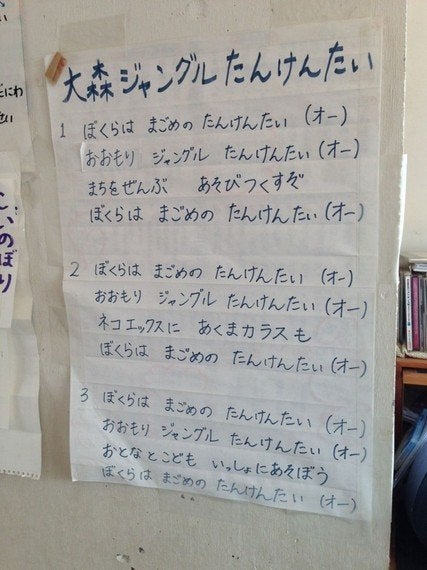 大森ジャングルたんけんたい
1 ぼくらは まごめの たんけんたい (オー)
おおもり ジャングル たんけんたい (オー)
まちをぜんぶ あそびつくすぞ
ぼくらは まごめの たんけんたい (オー)
2 ぼくらは まごめの たんけんたい (オー)
おおもり ジャングル たんけんたい (オー)
ネコエックスに あくまカラスも
ぼくらは まごめの たんけんたい (オー)
3 ぼくらは まごめの たんけんたい (オー)
おおもり ジャングル たんけんたい (オー)
おとなとこども いっしょにあそぼう
ぼくらは まごめの たんけんたい (オー)
こいのぼり